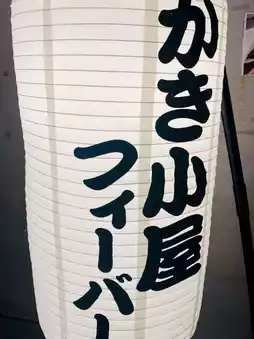 かき小屋
フィーバー